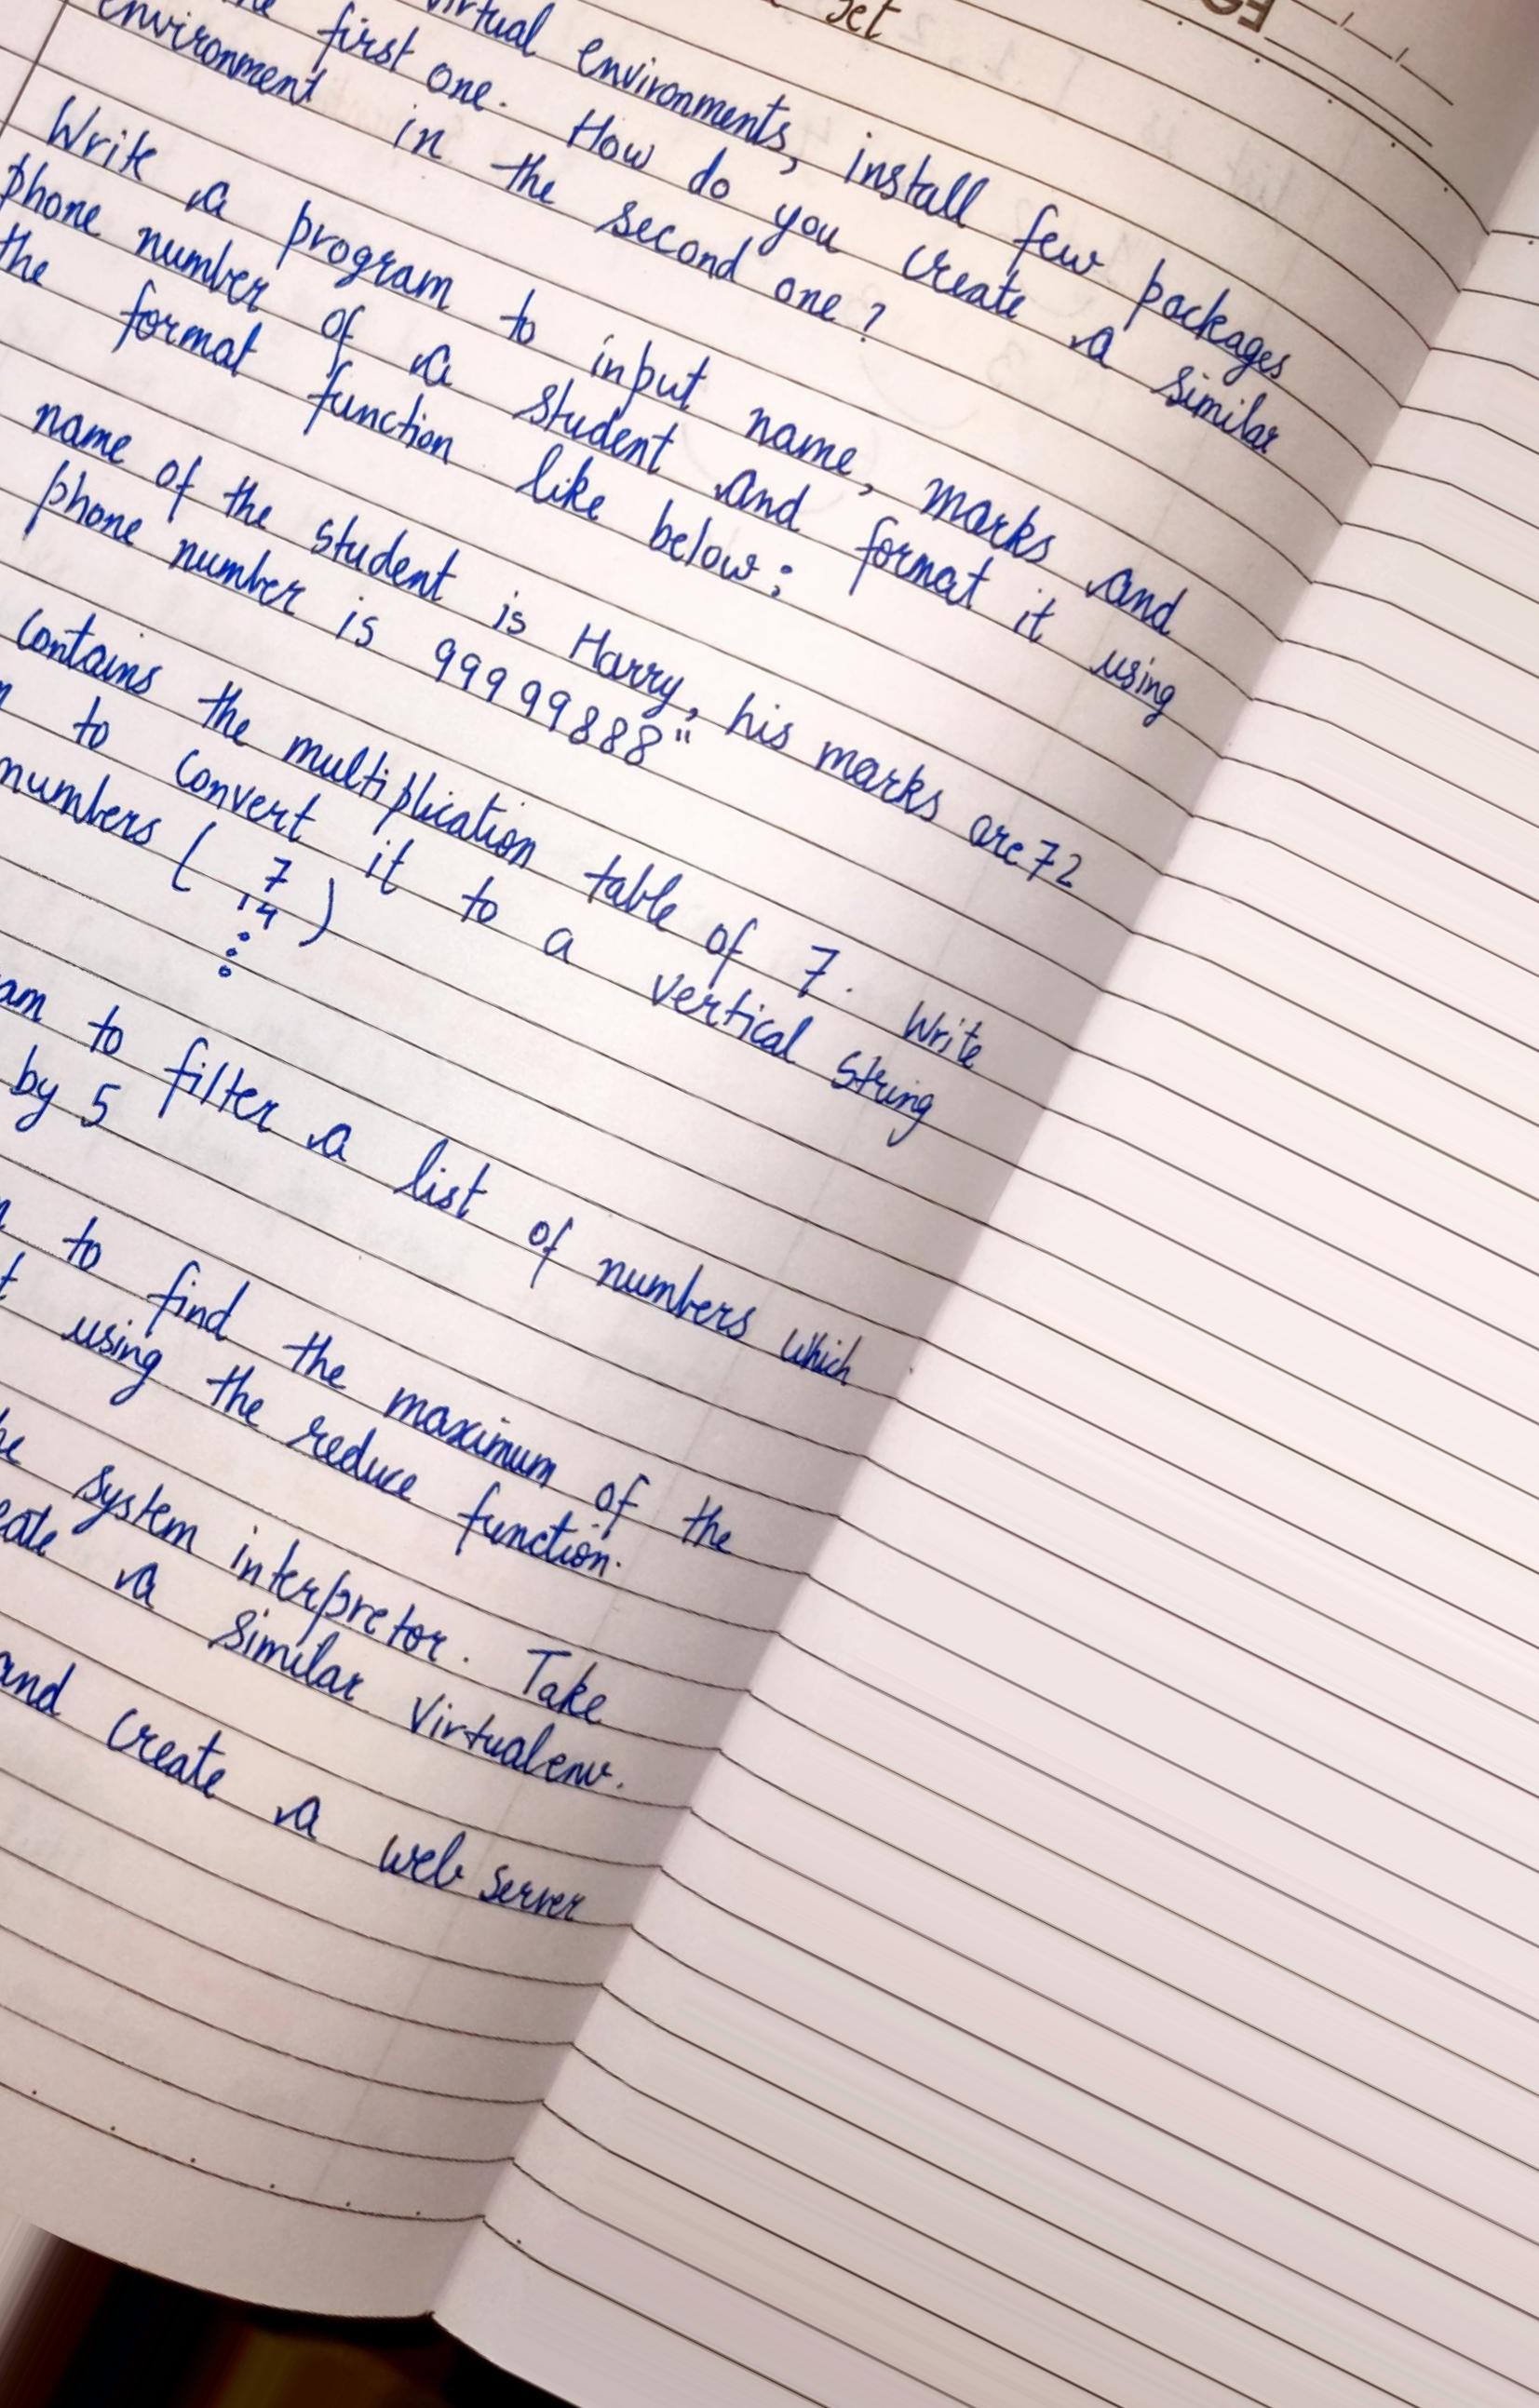 Set
virtual environments, install few packages
first one. How do you create a similar
environment in the second one?
Write a program to input name, marks and
phone number of a student and format it using
the format function like below:
name of the student is Harry, his marks are 72
phone number is 99999888"
contains the multiplication table of 7. Write
to convert it to a vertical string
numbers ( 7
14 )
to filter a list of numbers which
by 5
to find the maximum of the
using the reduce function.
system interpretor. Take
a similar virtualenv.
and create a web server